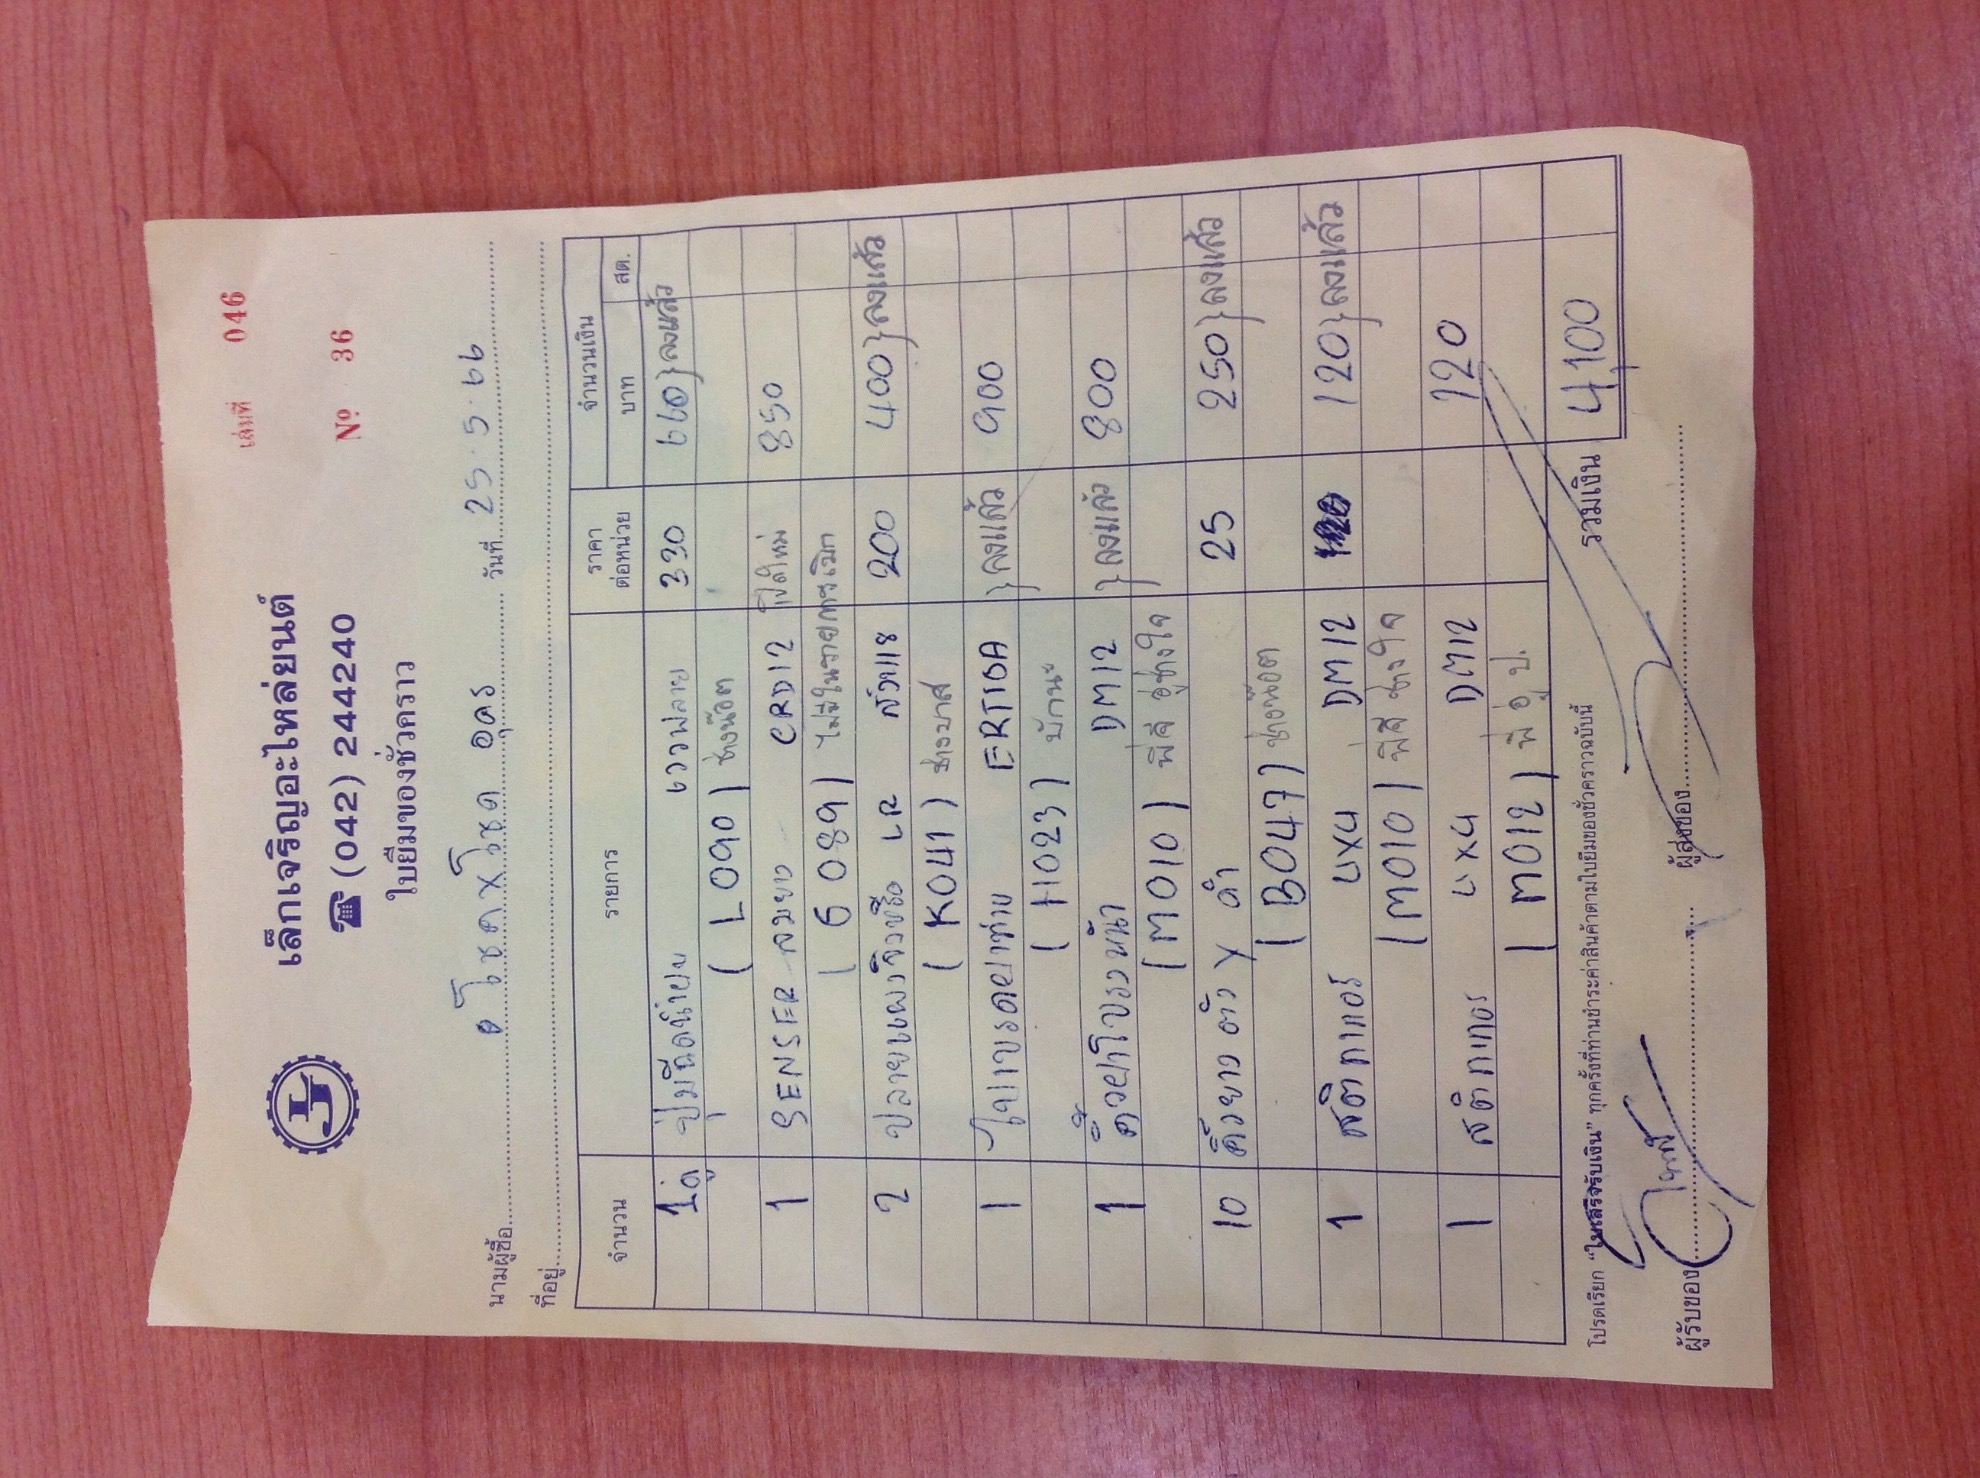 เล่มที่ 046
เล็กเจริญอะไหล่ยนต์
☎ (042) 244240
Nº 36
ใบยืมของชั่วคราว
นามผู้ซื้อ โชคxโชค อุดร วันที่ 25.5.66
ที่อยู่
จำนวน รายการ ราคาต่อหน่วย จำนวนเงิน บาท สต.
1 ปุ่มฉีดน้ำ เวฟลาย 330 660 } ลงแล้ว
( L090 ) ช่างน๊อต
1 SENSER ลมยาง CRD12 850
( G089 ) ไม่มีในรายการเบิก
2 ปลายแผงจิ้งหรีด LR 200 400 } ลงแล้ว
( K041 ) ช่างบาส
1 ใบเบรค ERTIGA } ลงแล้ว 900
( H023 )
1 หน้า DM12 } ลงแล้ว 800
( M010 ) พี่สี อู่ช่างใจ
10 ดำ 25 250 } ลงแล้ว
( B047 ) ช่างน๊อต
1 สติกเกอร์ 4x4 DM12 120 } ลงแล้ว
( M010 ) พี่สี ช่างใจ
1 สติกเกอร์ 4x4 DM12 120
( M012 ) พี่ อู๋ ป.
รวมเงิน 4,100
โปรดเรียก "ใบเสร็จรับเงิน" ทุกครั้งที่ท่านชำระค่าสินค้าตามใบยืมของชั่วคราวฉบับนี้
ผู้รับของ ผู้ส่งของ